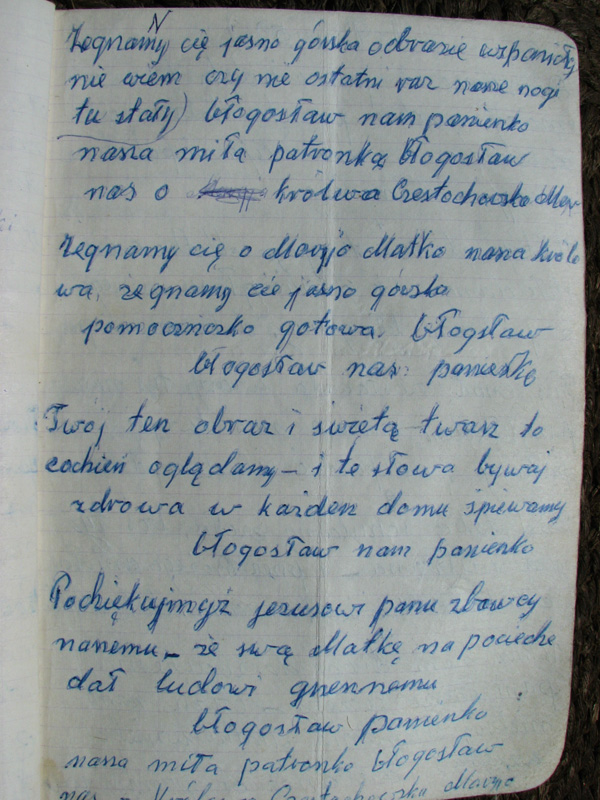 N
Żegnamy cię jasno górska obrazie wspaniały
nie wiem czy nie ostatni raz nasze nogi
tu stały) błogosław nam panienko
nasza miła patronką błogosław
nas o królowa Częstochowska
Żegnamy cię o Maryjo Matko nasza królo
wa, żegnamy cie jasno górska
pomoczniczko gotowa. błogsław
błogosław nas panienko
Twój ten obraz i świętą twarz to
codzień oglądamy – i te słowa bywaj
zdrowa w każdem domu śpiewamy
błogosław nam panienko
Podziękujmyż jezusowi panu zbawcy
naszemu – że swą Matkę na pocieche
dał ludowi grzesznemu
błogosław panienko
nasza miła patronko błogosław
nas o Częstochowska Maryjo